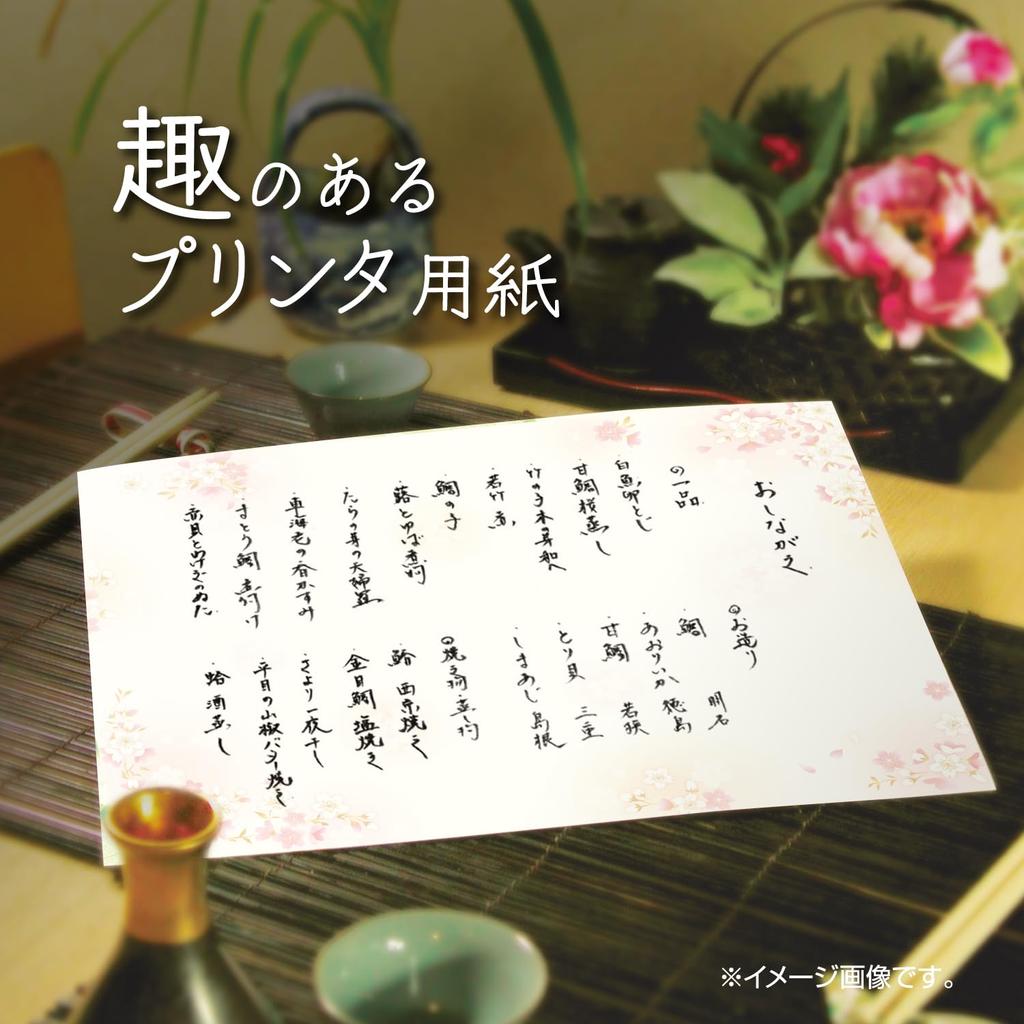 趣のある
プリンタ用紙
おしながき
の一品
白魚卵とじ
甘鯛桜蒸し
竹の子木の芽和え
若竹煮
鯛の子
たらの芽の天婦羅
車海老の
蛤酒蒸し
お造り
鯛 明石
あおりいか 徳島
甘鯛 若狭
とり貝 三重
しまあじ 島根
焼き物・蒸し物
西京焼き
金目鯛塩焼き
さより一夜干し
平目の山椒バター焼き
※イメージ画像です。